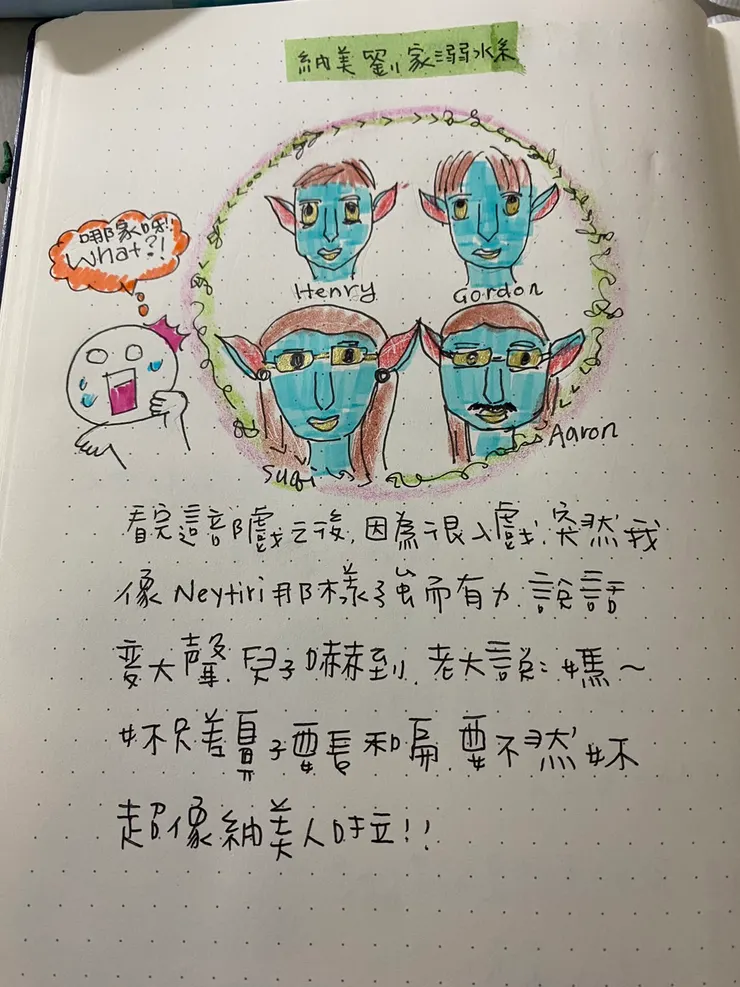 納美劉家溺水系
哪家呀!!
What?!
Henry
Gordon
Suqi
Aaron
看完這部戲之後,因為很入戲,突然我
像Neytiri那樣強而有力.說話
變大聲.兒子嚇到.老大說:媽~
妳只差鼻子要長和扁.要不然妳
超像納美人啦!!